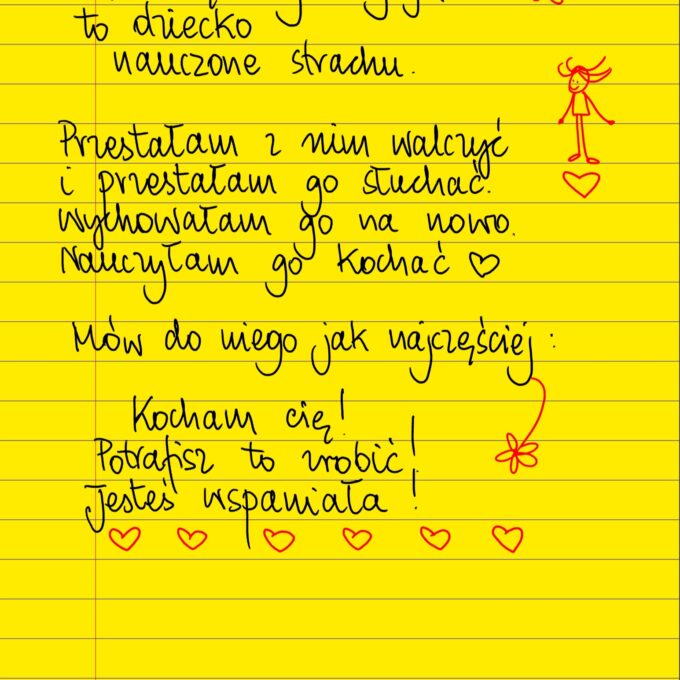 to dziecko
nauczone strachu.
Przestałam z nim walczyć
i przestałam go słuchać.
Wychowałam go na nowo.
Nauczyłam go kochać
Mów do niego jak najczęściej:
Kocham cię!
Potrafisz to zrobić!
Jesteś wspaniała!